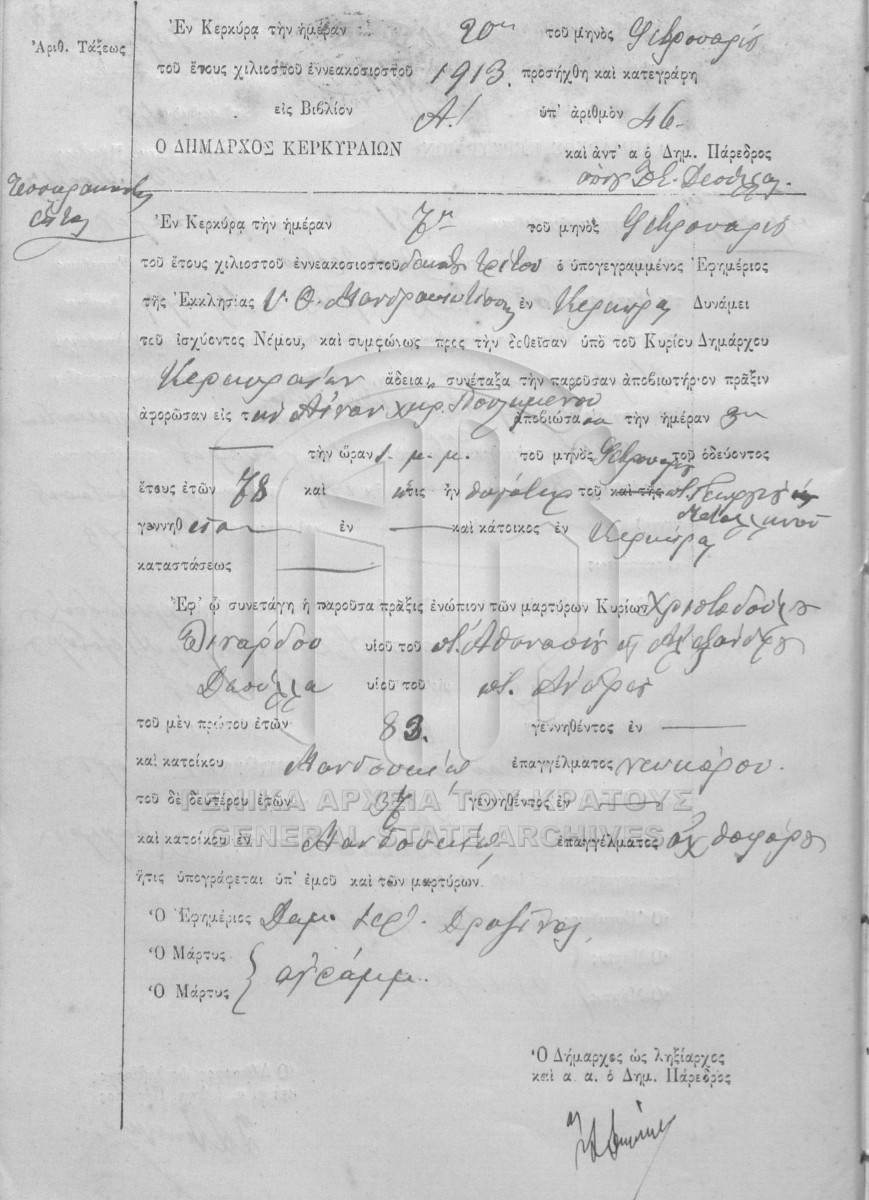 Ἐν Κερκύρᾳ τὴν ἡμέραν 20ην τοῦ μηνὸς Φεβρουαρίου
Ἀριθ. Τάξεως
τοῦ ἔτους χιλιοστοῦ ἐννεακοσιοστοῦ 1913. προσήχθη καὶ κατεγράφη
εἰς Βιβλίον Α! ὑπ' ἀριθμὸν 46.
Ο ΔΗΜΑΡΧΟΣ ΚΕΡΚΥΡΑΙΩΝ καὶ ἀντ' α ὁ Δημ. Πάρεδρος
Τεσσαρακοντα
ἑπτα
Ἐν Κερκύρᾳ τὴν ἡμέραν 7ην τοῦ μηνὸς Φεβρουαρίου
τοῦ ἔτους χιλιοστοῦ ἐννεακοσιοστοῦ δεκάτου τρίτου ὁ ὑπογεγραμμένος Ἐφημέριος
τῆς Ἐκκλησίας Υ. Θ. Μανδρακιωτίσσης ἐν Κερκύρᾳ Δυνάμει
τοῦ ἰσχύοντος Νόμου, καὶ συμφώνως προς τὴν δοθεῖσαν ὑπὸ τοῦ Κυρίου Δημάρχου
Κερκυραίων ἄδειαν, συνέταξα τὴν παροῦσαν ἀποβιωτήριον πρᾶξιν
ἀφορῶσαν εἰς τὴν χηρ. ἀποβιώσασαν τὴν ἡμέραν
τὴν ὥραν 1. μ. μ. τοῦ μηνὸς Φεβρουαρίου τοῦ ὁδεύοντος
ἔτους ἐτῶν 78 καὶ ἥτις ἦν θυγάτηρ τοῦ καὶ τῆς π. Γεωργίου
γεννηθεῖσα ἐν καὶ κάτοικος ἐν Κερκύρᾳ
καταστάσεως
Ἐφ' ᾧ συνετάγη ἡ παροῦσα πρᾶξις ἐνώπιον τῶν μαρτύρων Κυρίων Χριστοδούλου
υἱοῦ τοῦ π. Ἀθανασίου ἢ Ἀλεξάνδρου
Δεσύλλα υἱοῦ τοῦ π. Ἀνδρέου
τοῦ μὲν πρώτου ἐτῶν 83. γεννηθέντος ἐν
καὶ κατοίκου Μανδουκίῳ ἐπαγγέλματος
τοῦ δὲ δευτέρου ἐτῶν 37 γεννηθέντος ἐν
ΓΕΝΙΚΑ ΑΡΧΕΙΑ ΤΟΥ ΚΡΑΤΟΥΣ
GENERAL STATE ARCHIVES
καὶ κατοίκου ἐν Μανδουκίῳ ἐπαγγέλματος ἀχθοφόρου
ἥτις ὑπογράφεται ὑπ' ἐμοῦ καὶ τῶν μαρτύρων.
Ὁ Ἐφημέριος
Ὁ Μάρτυς
ἀγράμμ.
Ὁ Μάρτυς
Ὁ Δήμαρχος ὡς ληξίαρχος
καὶ α. α. ὁ Δημ. Πάρεδρος